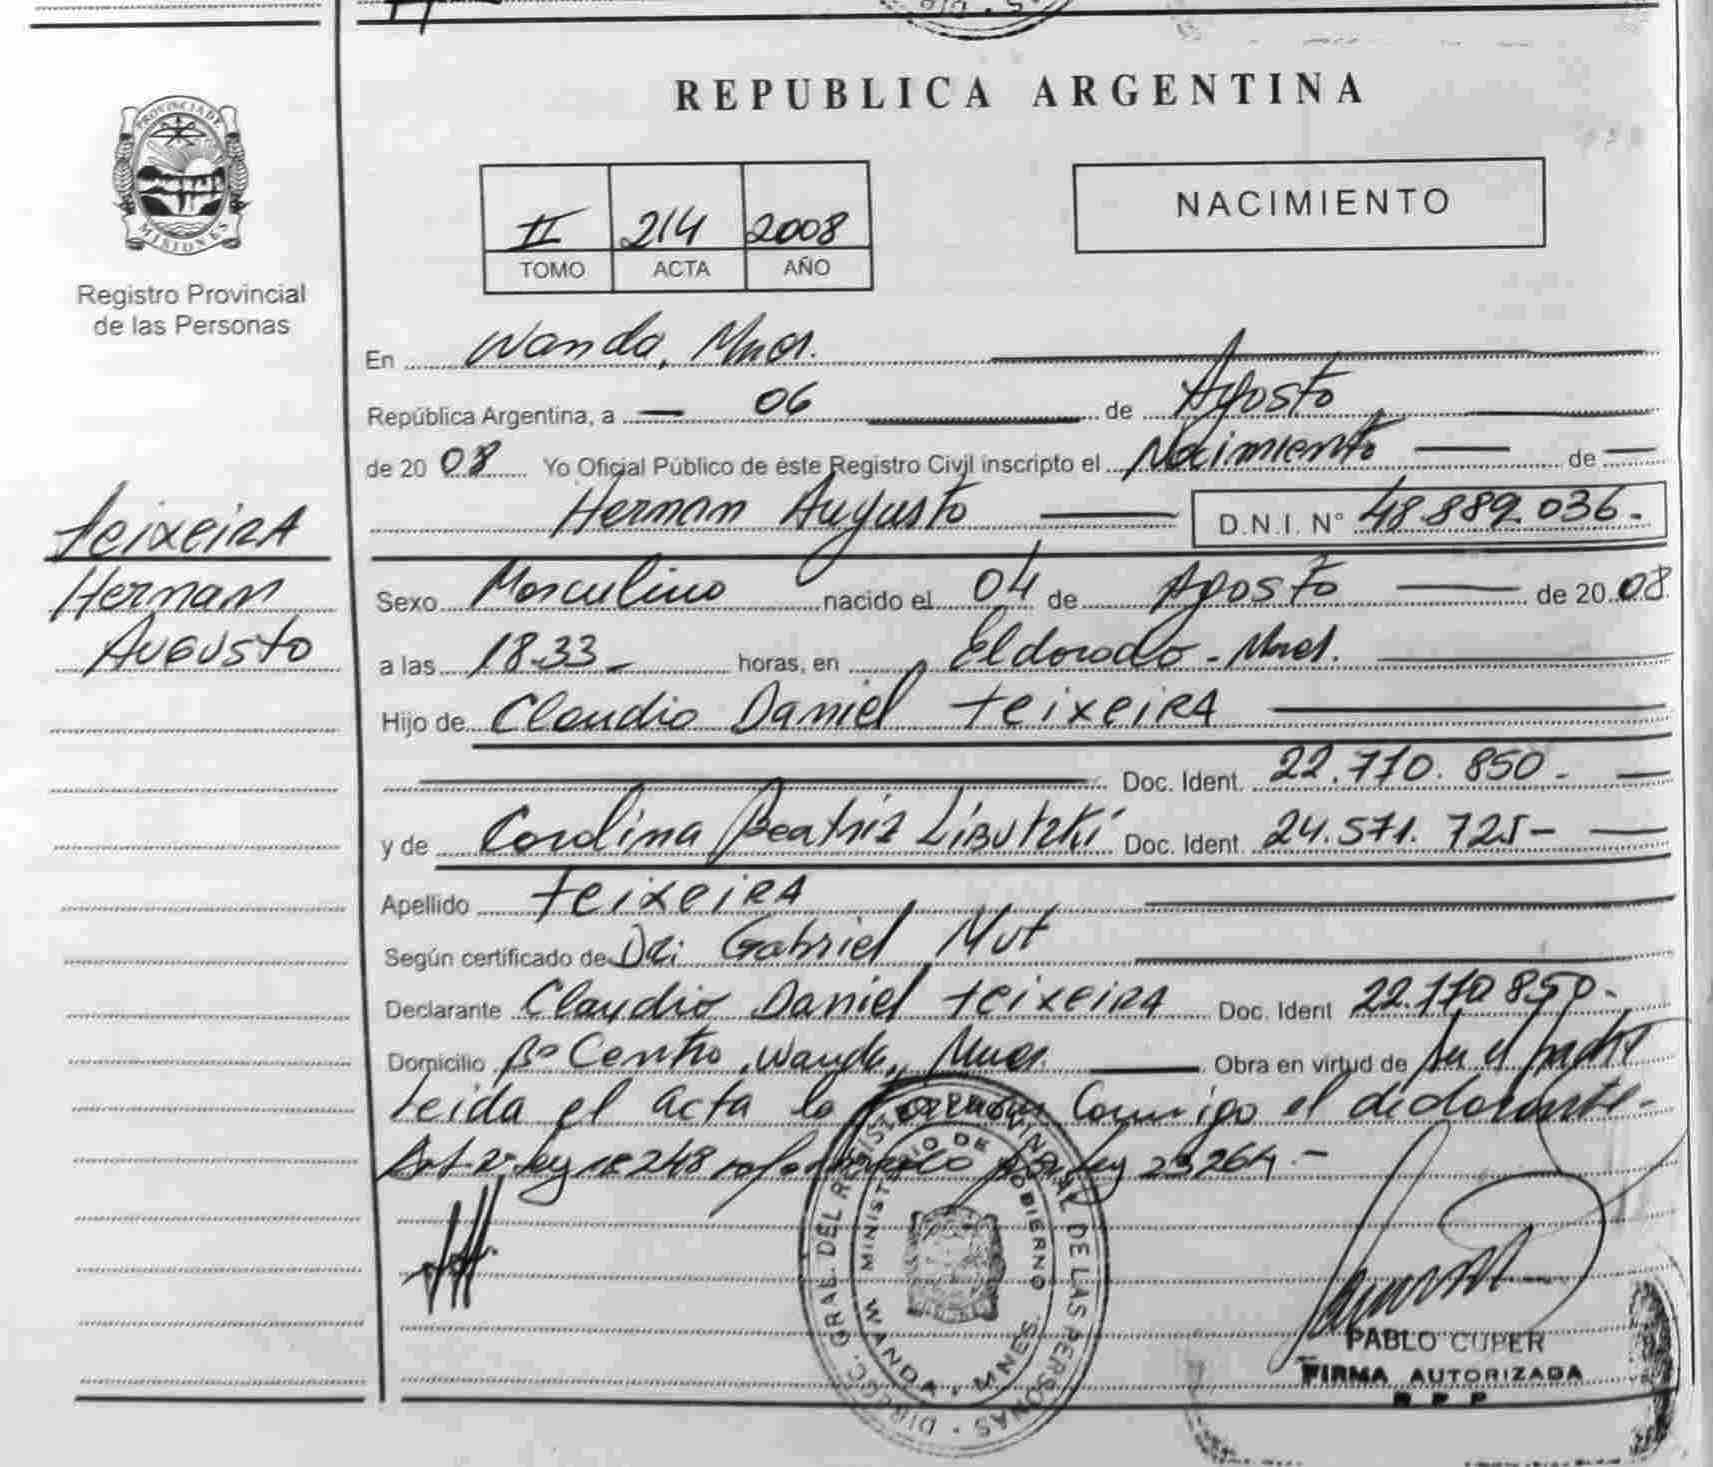 REPUBLICA ARGENTINA
PROVINCIA DE MISIONES
Registro Provincial
de las Personas
II 214 2008
TOMO ACTA AÑO
NACIMIENTO
En Wanda, Mnes.
República Argentina, a 06 de Agosto
de 2008 Yo Oficial Público de éste Registro Civil inscripto el Nacimiento de
Hernan Augusto D.N.I. N° 48.889.036.-
Teixeira
Hernan
Augusto
Sexo Masculino nacido el 04 de Agosto de 2008
a las 18.33 horas, en Eldorado - Mnes.
Hijo de Claudio Daniel Teixeira
Doc. Ident. 22.710.850.-
y de Carolina Beatriz Libutzki Doc. Ident. 24.571.725-
Apellido Teixeira
Según certificado de Dr: Gabriel Mut
Declarante Claudio Daniel Teixeira Doc. Ident 22.710.850.-
Domicilio Bº Centro, Wanda, Mnes. Obra en virtud de ser el padre
Leida el acta la conmigo el declarante-
Art. 2º Ley 18248 por Ley 23264.-
DIRECC. GRAL. DEL REGISTRO PROVINCIAL DE LAS PERSONAS
MINISTERIO DE GOBIERNO
WANDA - MNES.
PABLO CUPER
FIRMA AUTORIZADA
R P P